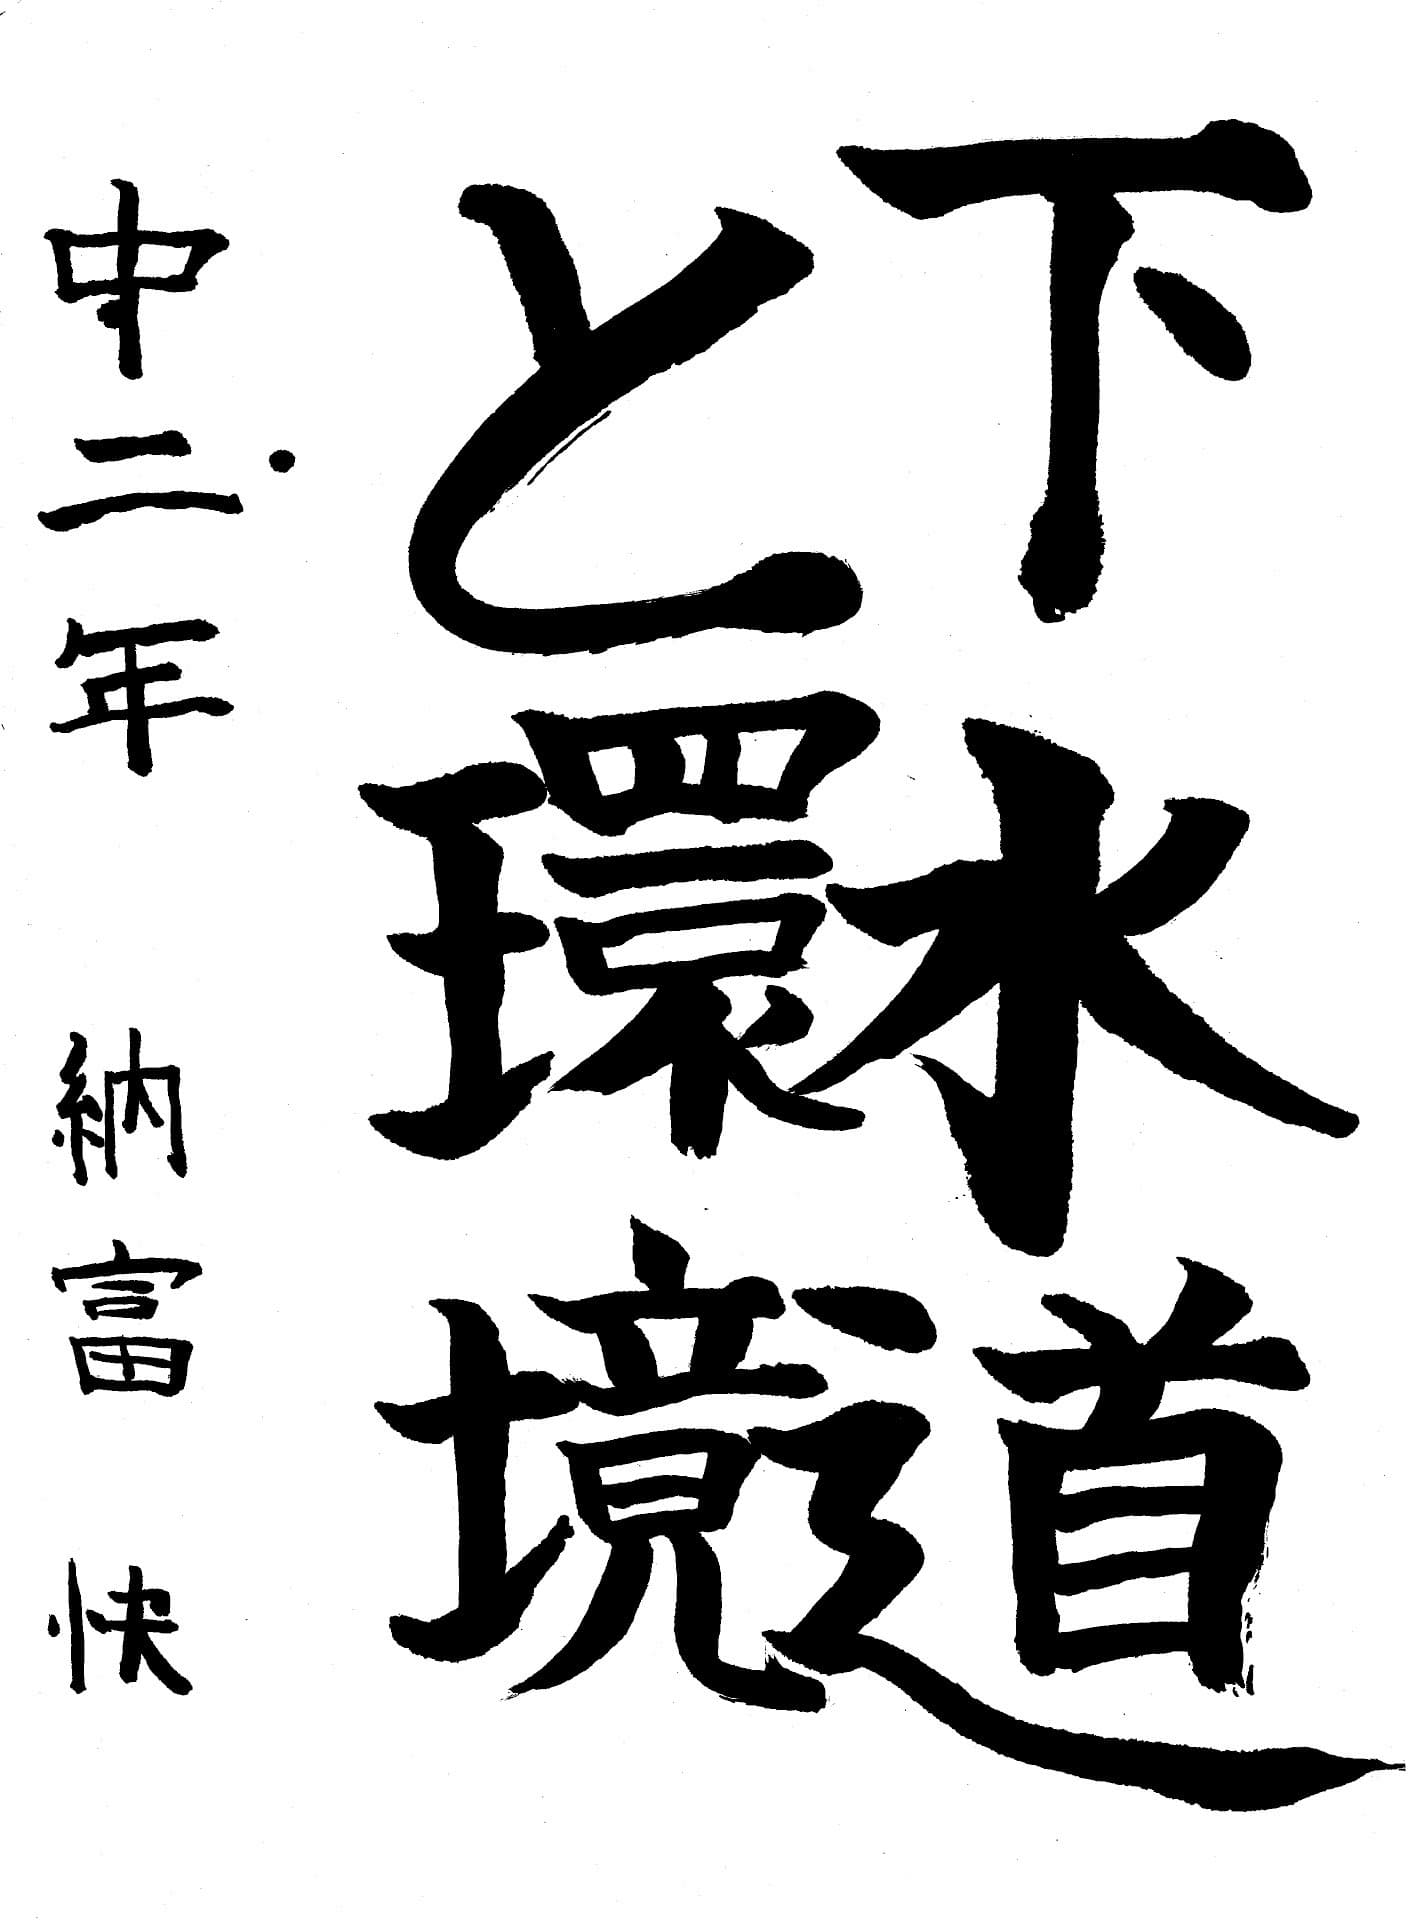 下水道
と環境
中二年 納富快